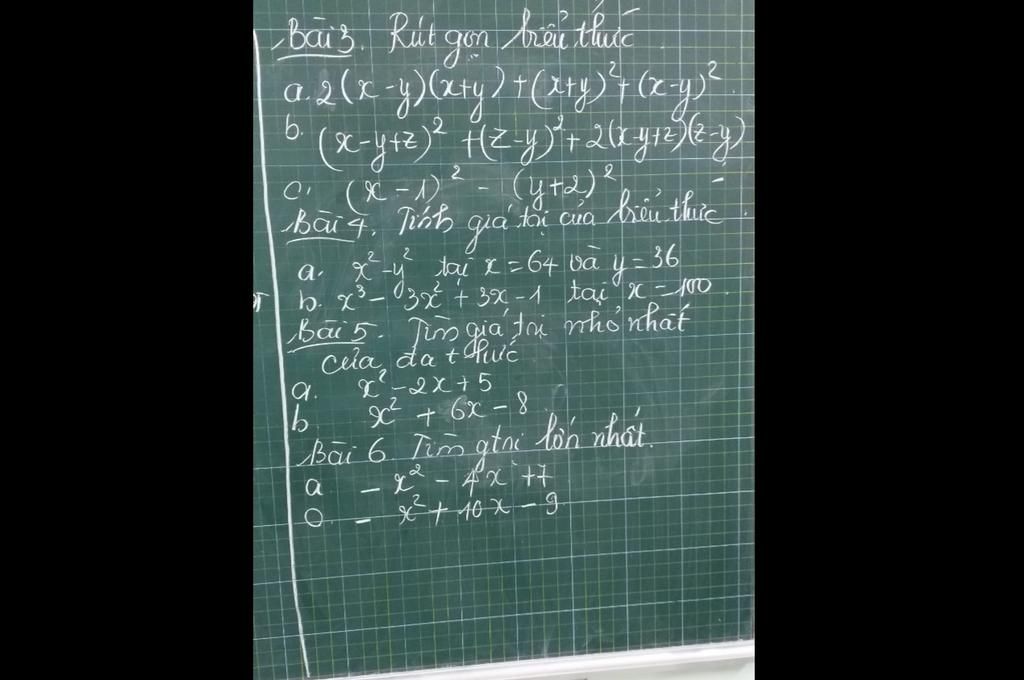 Bài 3. Rút gọn biểu thức.
a. 2(x-y)(x+y)+(x+y)²+(x-y)².
b. (x-y+z)² +(z-y)²+2(x-y+z)(z-y)
c. (x-1)² - (y+2)²
Bài 4. Tính giá trị của biểu thức.
a. x²-y² tại x=64 và y=36
b. x³- 3x²+3x-1 tại x=100.
Bài 5. Tìm giá trị nhỏ nhất
của đa thức
a. x²-2x+5
b. x² + 6x - 8
Bài 6. Tìm gtrị lớn nhất.
a - x² - 4x +7
- x² + 10x - 9